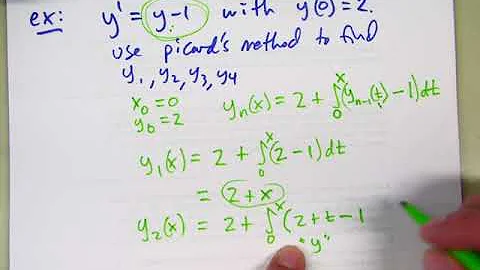 ex: y' = y-1 with y(0) = 2.
use picard's method to find
y₁, y₂, y₃, y₄
x₀ = 0
y₀ = 2
yₙ(x) = 2 + ∫₀ˣ (yₙ₋₁(t) - 1) dt
y₁(x) = 2 + ∫₀ˣ (2 - 1) dt
= 2 + x
y₂(x) = 2 + ∫₀ˣ (2 + t - 1
"y"